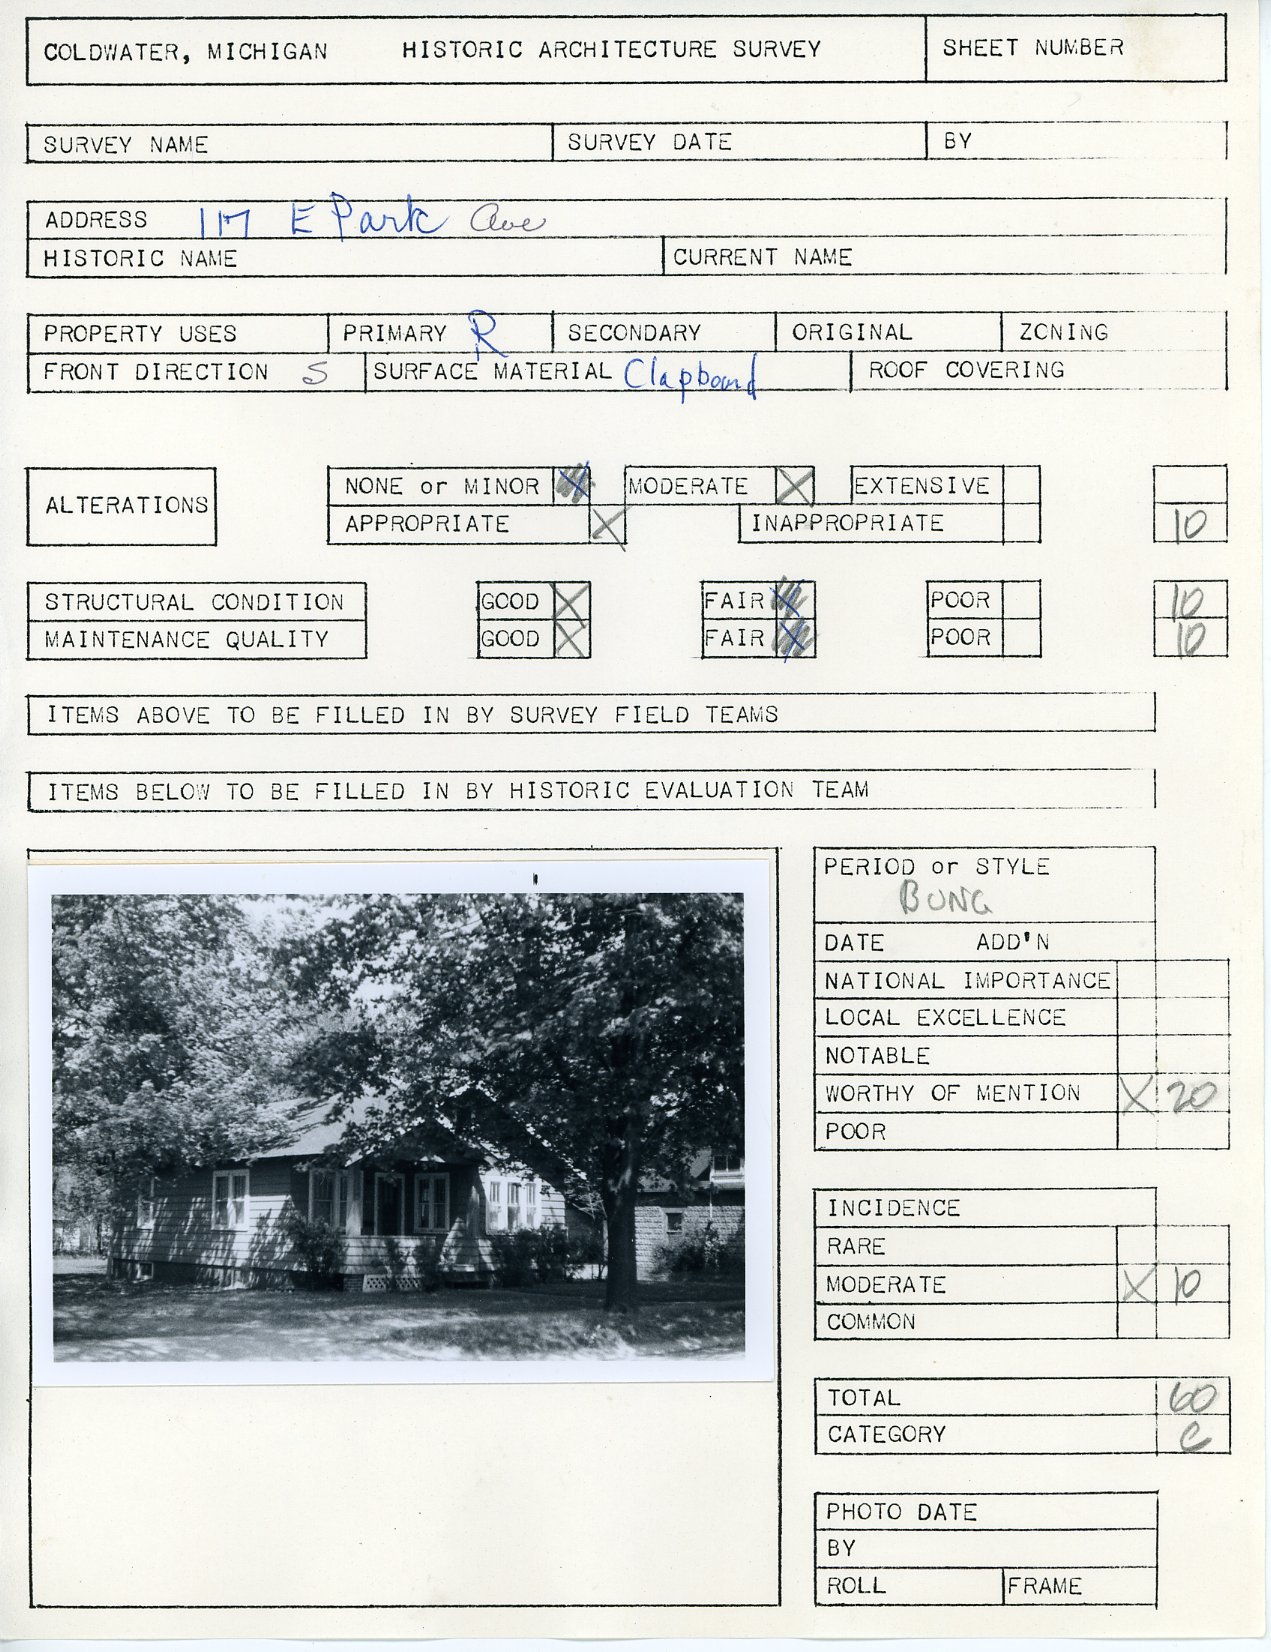 COLDWATER, MICHIGAN HISTORIC ARCHITECTURE SURVEY SHEET NUMBER
SURVEY NAME SURVEY DATE BY
ADDRESS 117 E Park Ave
HISTORIC NAME CURRENT NAME
PROPERTY USES PRIMARY R SECONDARY ORIGINAL ZONING
FRONT DIRECTION S SURFACE MATERIAL Clapboard ROOF COVERING
ALTERATIONS
NONE or MINOR X MODERATE X EXTENSIVE
APPROPRIATE X INAPPROPRIATE 10
STRUCTURAL CONDITION GOOD X FAIR X POOR 10
MAINTENANCE QUALITY GOOD X FAIR X POOR 10
ITEMS ABOVE TO BE FILLED IN BY SURVEY FIELD TEAMS
ITEMS BELOW TO BE FILLED IN BY HISTORIC EVALUATION TEAM
PERIOD or STYLE
BUNG
DATE ADD'N
NATIONAL IMPORTANCE
LOCAL EXCELLENCE
NOTABLE
WORTHY OF MENTION X 20
POOR
INCIDENCE
RARE
MODERATE X 10
COMMON
TOTAL 60
CATEGORY C
PHOTO DATE
BY
ROLL FRAME